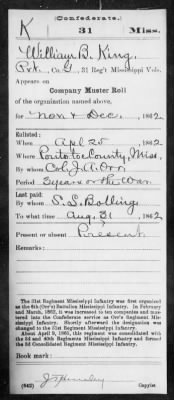 (Confederate.)
K 31 Miss.
William B. King,
Pvt., Co. , 31 Reg't Mississippi Vols.
Appears on
Company Muster Roll
of the organization named above,
for Nov & Dec, 1862
Enlisted:
When Apl 25, 1862
Where Pontotoc County, Miss,
By whom Col. J. A. Orr,
Period 3 years or the War
Last paid:
By whom S. S. Bolling
To what time Aug. 31, 1862
Present or absent Present
Remarks:
The 31st Regiment Mississippi Infantry was first organized
as the 6th (Orr's) Battalion Mississippi Infantry. In February
and March, 1862, it was increased to ten companies and mus-
tered into the Confederate service as Orr's Regiment Missis-
sippi Infantry. Shortly afterward the designation was
changed to the 31st Regiment Mississippi Infantry.
About April 9, 1865, this regiment was consolidated with
the 3d and 40th Regiments Mississippi Infantry and formed
the 3d Consolidated Regiment Mississippi Infantry.
Book mark:
(642) Copyist.